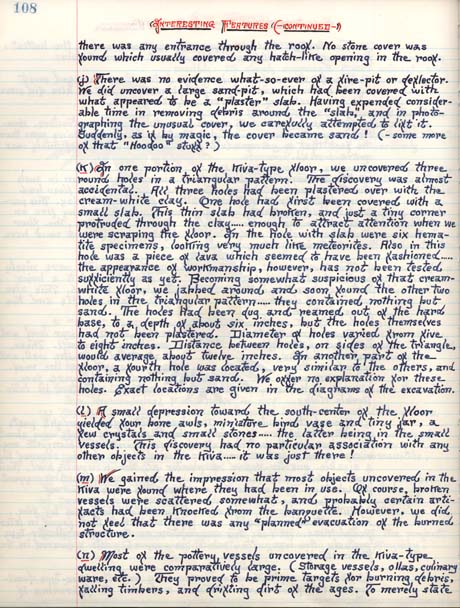 108
"Interesting Features" (-continued-)
there was any entrance through the roof. No stone cover was
found which usually covered any hatch-like opening in the roof.
(j) There was no evidence what-so-ever of a fire-pit or deflector.
We did uncover a large sand-pit, which had been covered with
what appeared to be a "plaster" slab. Having expended consider-
able time in removing debris around the "slab," and in photo-
graphing the unusual cover, we carefully attempted to lift it.
Suddenly, as if by magic, the cover became sand! (- some more
of that "Hoodoo" stuff?)
(k) In one portion of the Kiva-type floor, we uncovered three
round holes in a triangular pattern. The discovery was almost
accidental. All three holes had been plastered over with the
cream-white clay. One hole had first been covered with a
small slab. This thin slab had broken, and just a tiny corner
protruded through the clay.... enough to attract attention when we
were scraping the floor. In the hole with slab were six hema-
tite specimens, looking very much like meteorites. Also in this
hole was a piece of lava which seemed to have been fashioned.....
the appearance of workmanship, however, has not been tested
sufficiently as yet. Becoming somewhat suspicious of that cream-
white floor, we jabbed around and soon found the other two
holes in the triangular pattern..... they contained nothing but
sand. The holes had been dug and reamed out of the hard
base, to a depth of about six inches, but the holes themselves
had not been plastered. Diameter of holes varied from five
to eight inches. Distance between holes, on sides of the triangle,
would average about twelve inches. In another part of the
floor, a fourth hole was located, very similar to the others, and
containing nothing but sand. We offer no explanation for these
holes. Exact locations are given in the diagrams of the excavation.
(l) A small depression toward the south-center of the floor
yielded four bone awls, miniature bird vase and tiny jar, a
few crystals and small stones.... the latter being in the small
vessels. This discovery had no particular association with any
other objects in the Kiva.... it was just there!
(m) We gained the impression that most objects uncovered in the
Kiva were found where they had been in use. Of course, broken
vessels were scattered somewhat, and probably certain arti-
facts had been knocked from the banquette. However, we did
not feel that there was any "planned" evacuation of the burned
structure.
(n) Most of the pottery vessels uncovered in the Kiva-type
dwelling were comparatively large. (Storage vessels, ollas, culinary
ware, etc.) They proved to be prime targets for burning debris,
falling timbers, and drifting dirt of the ages. To merely state